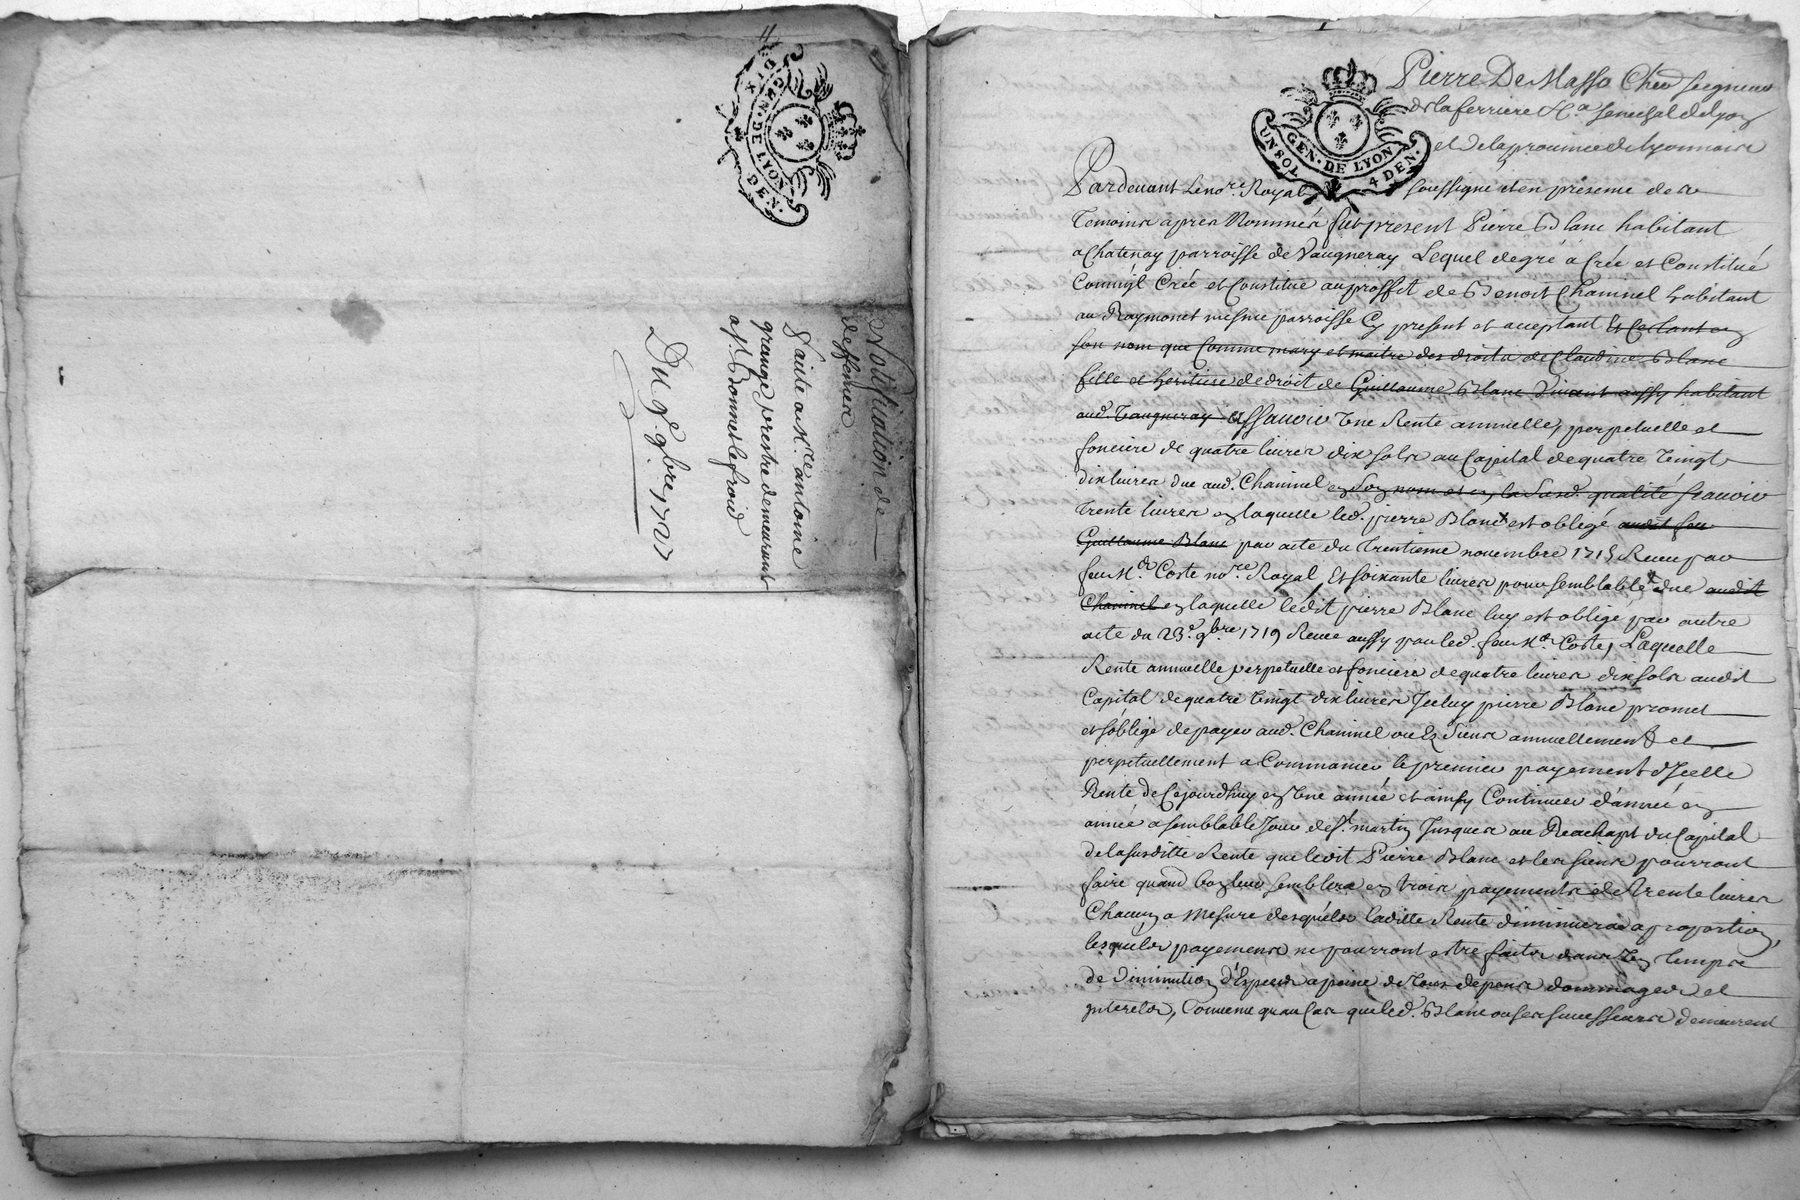 DIX
GEN. DE LYON
DEN.
Notiffication de
deffences
Faite a Mre antoine
grange prestre demeurant
a St. Bonnet le froid
Du 9e. 9bre. 1727
Pierre De Masso Cher seigneur
de la ferriere &a senechal de lyon
et de la prouince de lyonnois
GEN. DE LYON
UN SOL
4 DEN.
Pardeuant Le nore Royal soussigné et en presence des
Temoins apres Nommés fut present Pierre Blanc habitant
a Chatenay parroisse de Vaugneray Lequel de gré a Créé et Constitué
Comme jl Créé et Constitue au proffit de Benoit Chaninel habitant
au Raymonet mesme parroisse Cy present et acceptant Et Ce tant en
son nom que Comme mary et maitre des droits de Claudine Blanc
fille et heritiere de droit de Guillaume Blanc Viuant aussy habitant
aud. Vaugneray assauoir Vne Rente annuelle, perpetuelle et
fonciere de quatre liures dix sols au Capital de quatre Vingt
dix liures due aud. Chaninel en Son nom et en la Susd. qualité scauoir
Trente liures en laquelle led. pierre Blanc est obligé audit feu
Guillaume Blanc par acte du Trentieme nouembre 1715 Receu par
feu Me. Coste nore Royal, Et soixante liures pour semblable due audit
Chaninel en laquelle ledit pierre Blanc luy est obligé par autre
acte du 23e. 9bre 1719 Receu aussy par led. feu Me. Coste, Laquelle
Rente annuelle perpetuelle et fonciere de quatre liures dix sols audit
Capital de quatre Vingt dix liures Jceluy pierre Blanc promet
et s'oblige de payer aud. Chaninel ou Es Siens annuellement et
perpetuellement a Commancer le premier payement d'Jcelle
Rente de Cejourdhuy en Vne année et ainsy Continuer d'année en
année a semblable Jour de St. martin Jusques au Reachapt du Capital
de la susditte Rente que ledit Pierre Blanc et les siens pourront
faire quand bon leur semblera en trois payements de trente liures
Chacun a Mesure desquels laditte Rente diminuera a proportion,
lesquels payements ne pourront estre faits dans Vn temps
de Diminution d'Especes a peine de Tous depens dommages et
jnterests, Conuenu qu'au Cas que led. Blanc ou ses successeurs demeurent